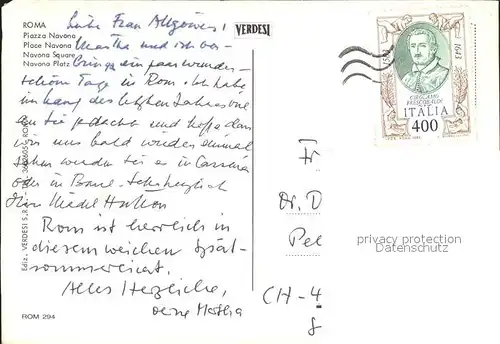 ROMA
Piazza Navona
Place Navona
Navona Square
Navona Platz
VERDESI
Liebe Frau Allgöwer,
Martha und ich ver-
bringen ein paar wunder-
schöne Tage in Rom. Ich habe
im des letzten Jahres viel
an Sie gedacht und hoffe dass
wir uns bald wieder einmal
sehen werden sei es in
oder in Basel. Sehr herzlich
Ihr
Rom ist herrlich in
diesem weichen Spät-
sommerlicht.
Alles Herzliche,
deine Martha
1583
1643
GIROLAMO
FRESCOBALDI
ITALIA
400
Fr
Dr. D
Pe
CH-4
privacy protection
Ansichtskartenversand.com
Ediz. VERDESI S.R.L. ROMA
ROM 294